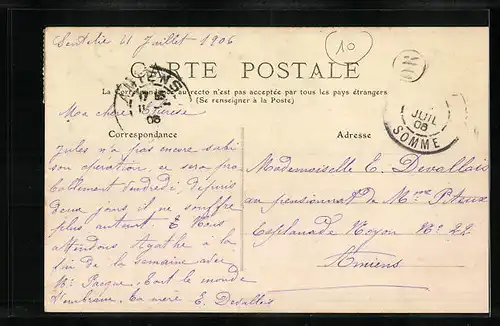 11 Juillet 1906
10
CARTE POSTALE
La Correspondance au recto n'est pas acceptée par tous les pays étrangers
(Se renseigner à la Poste)
AMIENS
17 35
06
JUIL
06
SOMME
Ma chère Thérèse
Correspondance
Adresse
Jules n'a pas encore subi
son opération, ce sera pro
bablement Vendredi, depuis
deux jours il ne souffre
plus autant
attendons Agathe à la
fin de la semaine avec
Mr Pacque, tout le monde
t'embrasse, ta mère E. Devallois
Mademoiselle E. Devallois
au pensionnat de Mme
Esplanade Noyon No 22
Amiens